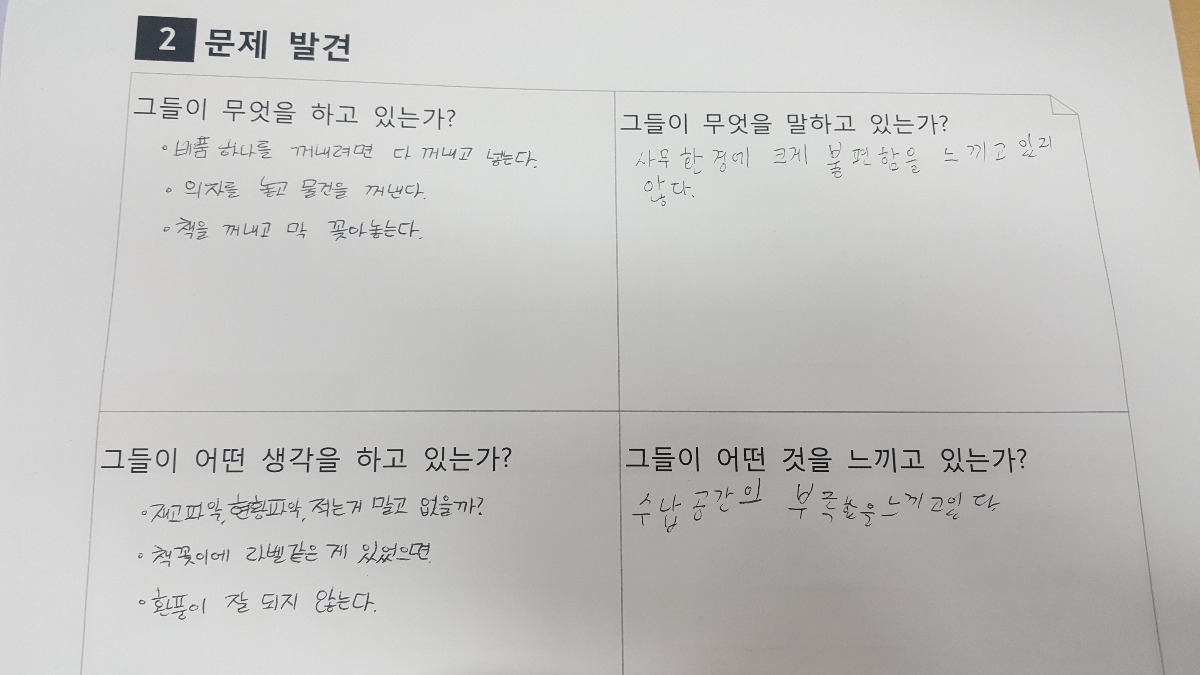 2 문제 발견
그들이 무엇을 하고 있는가?
◦ 비품 하나를 꺼내려면 다 꺼내고 넣는다.
◦ 의자를 놓고 물건을 꺼낸다.
◦ 책을 꺼내고 막 꽂아놓는다.
그들이 무엇을 말하고 있는가?
사무 환경에 크게 불편함을 느끼고 있지
않다.
그들이 어떤 생각을 하고 있는가?
• 재고파악, 현황파악, 적는게 말고 없을까?
• 책꽂이에 라벨같은 게 있었으면
• 환풍이 잘 되지 않는다.
그들이 어떤 것을 느끼고 있는가?
수납 공간의 부족함을 느끼고있다.